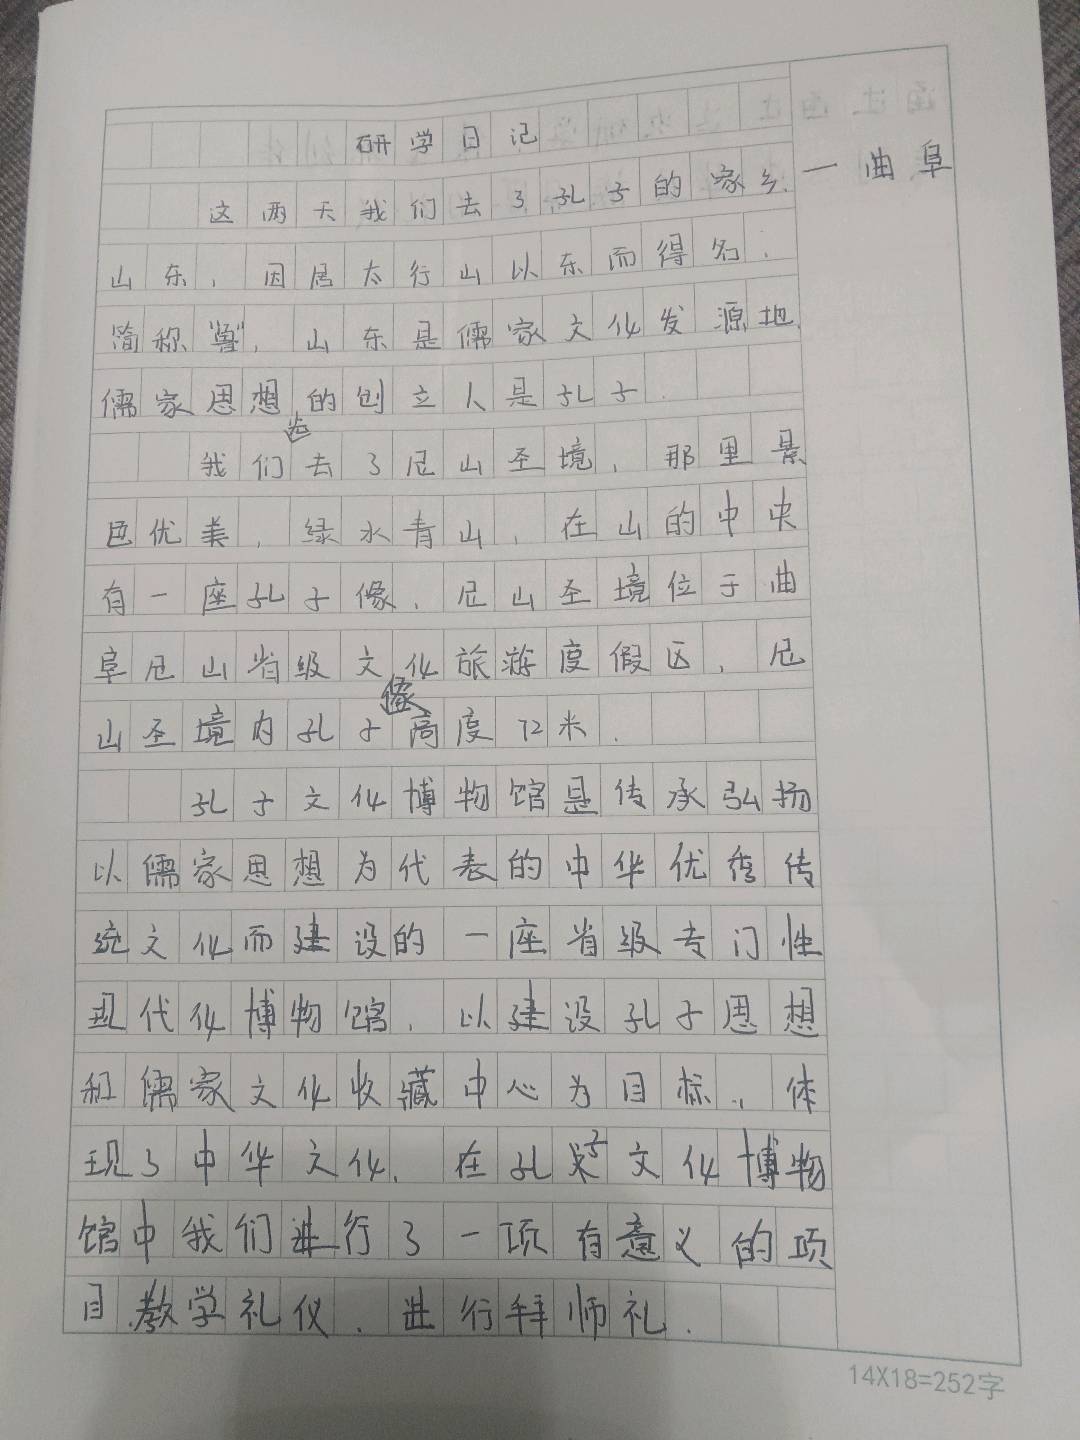 研学日记
这两天我们去了孔子的家乡.一曲阜
山东,因居太行山以东而得名.
简称“鲁”,山东是儒家文化发源地.
儒家思想的创立人是孔子.
我们去了尼山圣境,那里景
色优美,绿水青山,在山的中央
有一座孔子像.尼山圣境位于曲
阜尼山省级文化旅游度假区,尼
山圣境内孔子像高度72米.
孔子文化博物馆是传承弘扬
以儒家思想为代表的中华优秀传
统文化而建设的一座省级专门性
现代化博物馆.以建设孔子思想
和儒家文化收藏中心为目标,,体
现了中华文化.在孔子文化博物
馆中我们进行了一项有意义的项
目.教学礼仪.进行拜师礼.
14X18=252字